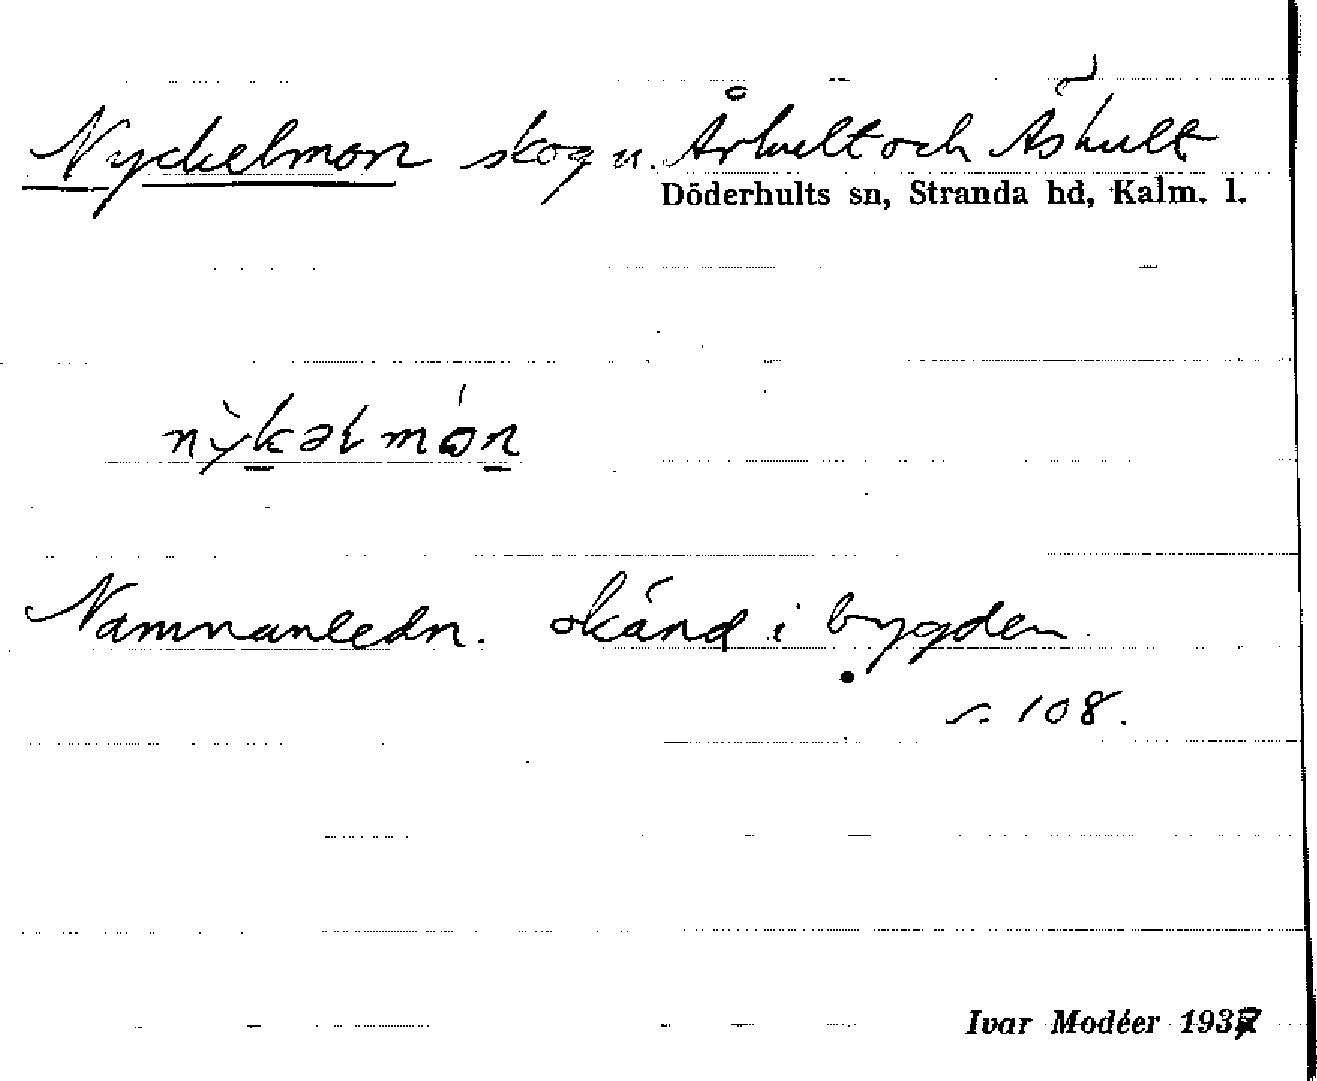 Nyckelmon skog u. Århult och Äshult
Döderhults sn, Stranda hd, Kalm. l.
nỳkəlmón
Namnanledn. okänd i bygden.
s. 108.
Ivar Modéer 1937